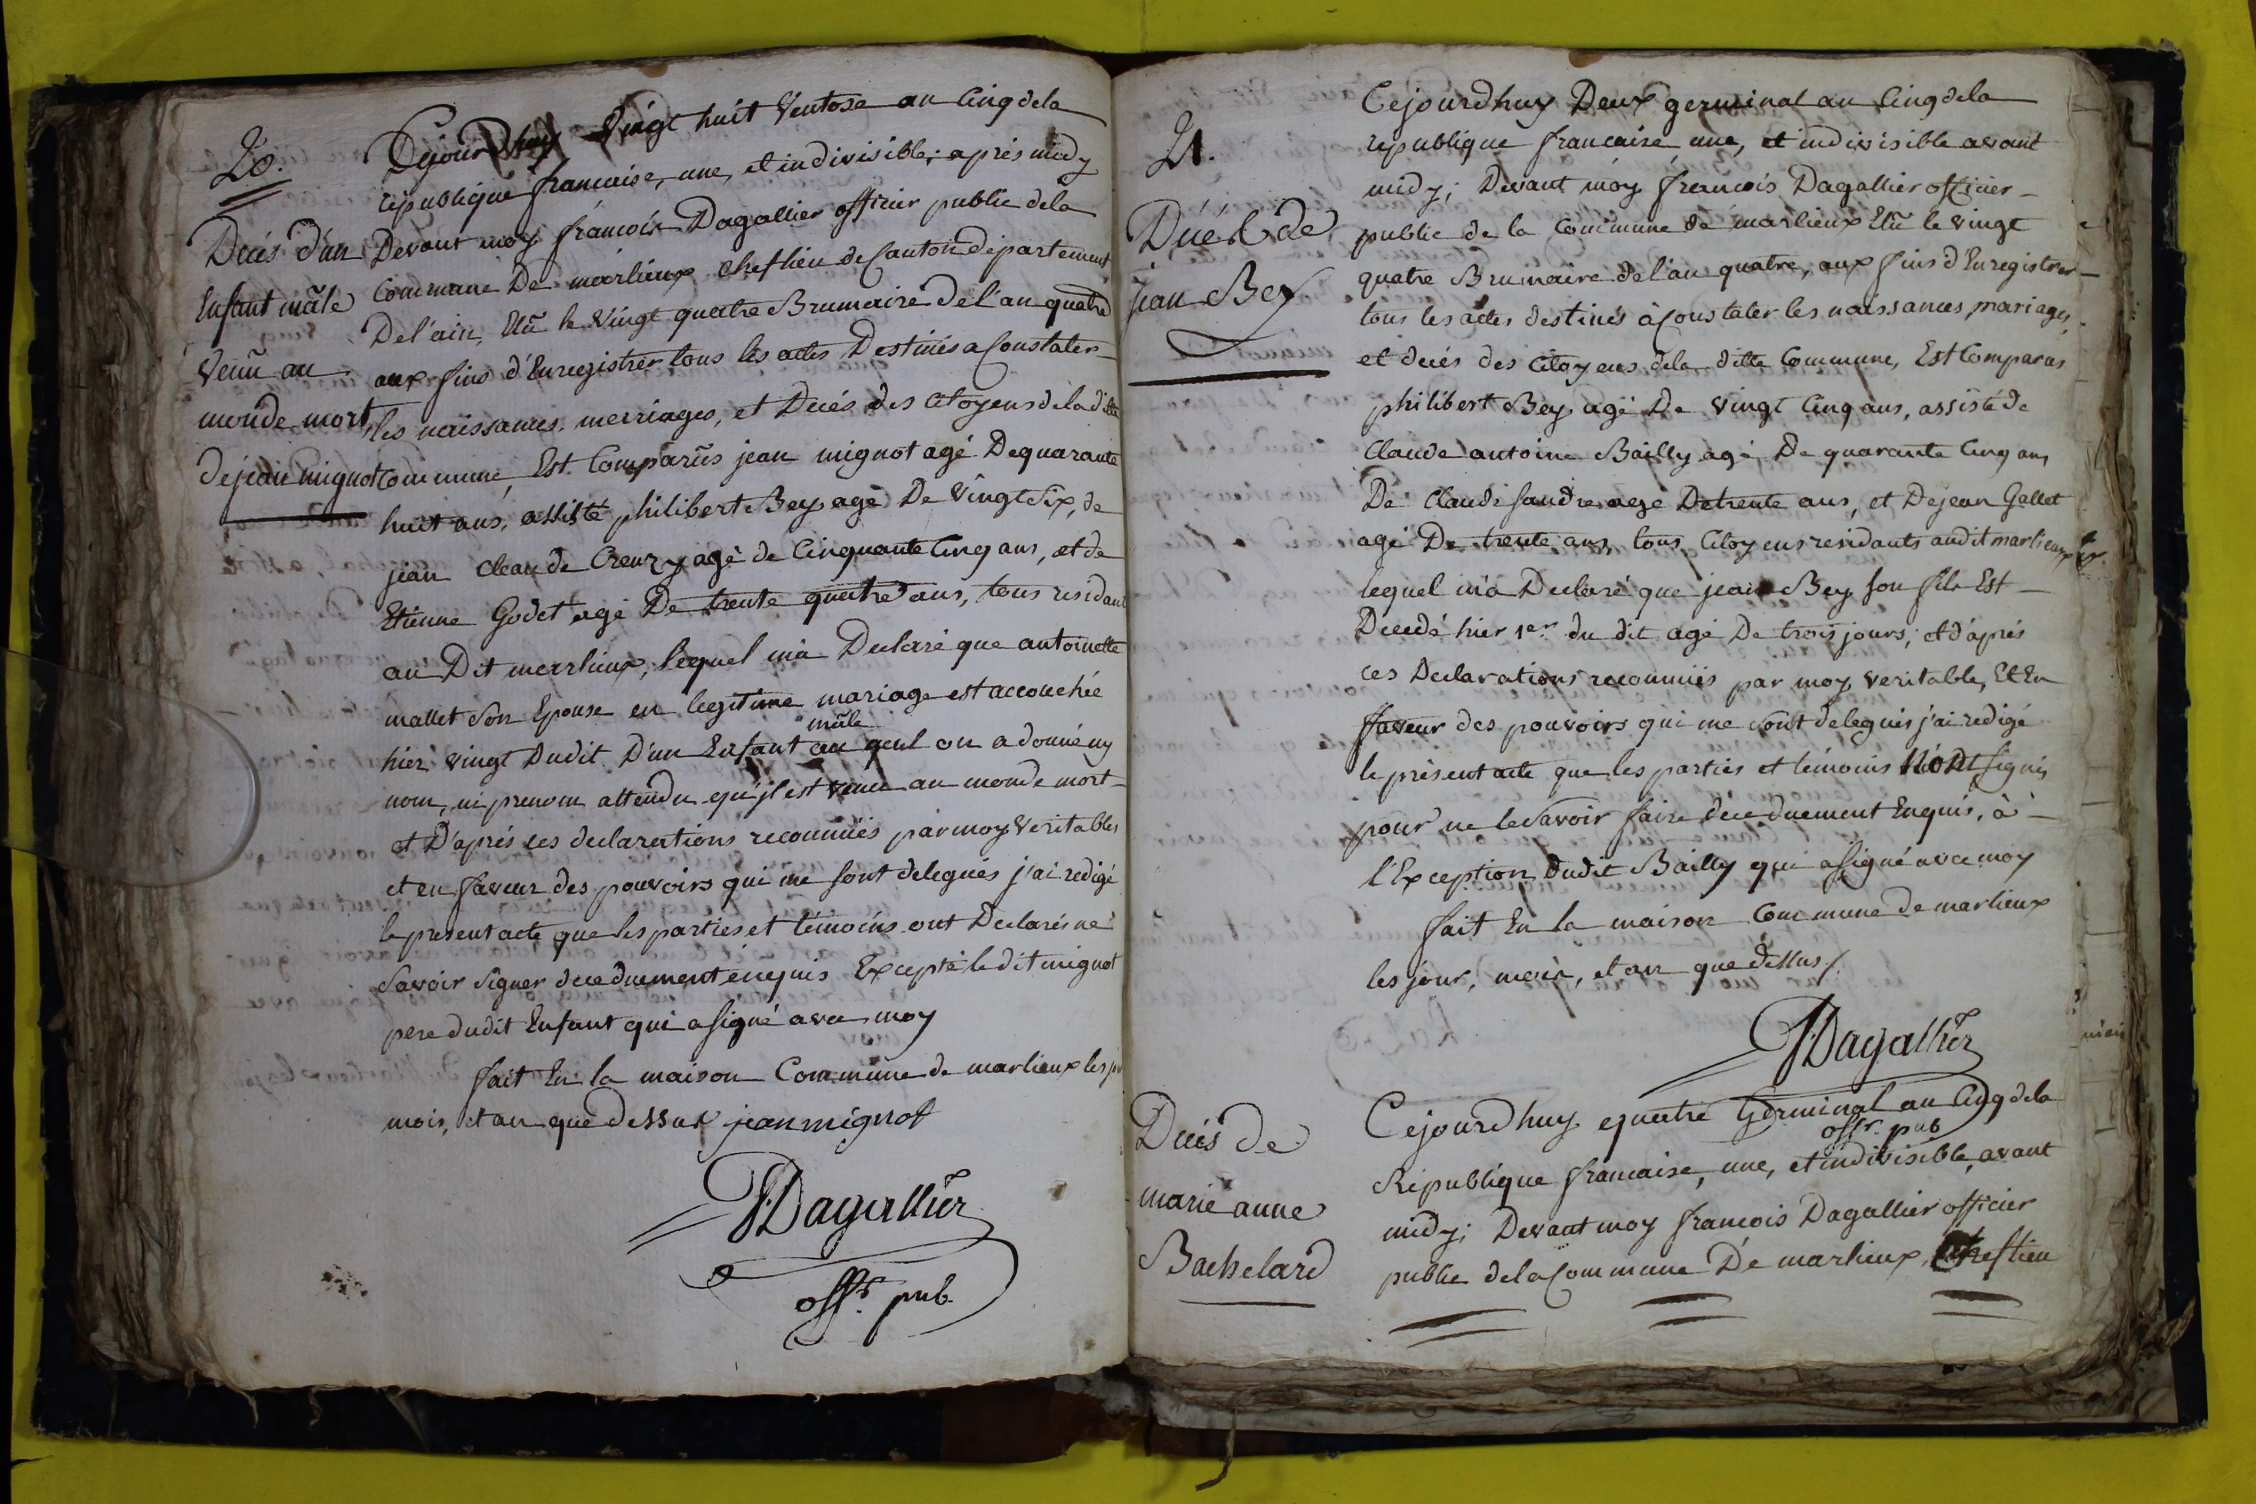 20.
Decés d'un
Enfant mâle
venû au
monde mort,
de jean mignot
Cejourdhuy vingt huit Ventose an Cinq dela
république francaise, une, et indivisible; après midy
Devant moy francois Dagallier officier public dela
Commune De marlieux cheflieu de Canton département
De l'ain, Elû le Vingt quatre Brumaire de l'an quatre
aux fins d'Enregistrer tous les actes Destinés a Constater
les naissances, merriages, et Décés des Citoyens dela ditte
Commune, Est Comparûs jean mignot agé De quarante
huit ans, assisté philibert Bey agé De Vingt Six, de
jean Claude Creuzy agé de Cinquante Cinq ans, et de
Etienne Godet agé De trente quatre ans, tous residant
au Dit marlieux, lequel m'a Declaré que antoinette
mallet Son Epouse en legitime mariage est accouchée
mâle
hier vingt Dudit D'un Enfant au quel on a donné ny
nom, ni prenom attendu qu'jl est venu au monde mort
et D'après ces declarations reconnuës par moy Veritables
et en faveur des pouvoirs qui me sont delegués j'ai redigé
le present acte que les parties et témoins ont Declarés ne
Savoir Signer dece duement enquis Excepté le dit mignot
pere dudit Enfant qui a signé avec moy
fait En la maison Commune de marlieux les jr
mois, et an que dessus jean mignot
JDagallier
offr. pub.
21.
Décés de
jean Bey
Cejourdhuy Deux germinal an Cinq dela
republique francaise une, et indivisible avant
midy; Devant moy francois Dagallier officier
public de la Commune de marlieux Elû le vingt
quatre Brumaire de l'an quatre, aux fins d'Enregistrer
tous les actes destinés à Constater les naissances, mariages,
et decés des Citoyens dela ditte Commune, Est Comparûs
philibert Bey agé De vingt Cinq ans, assisté de
Claude antoine Bailly agé De quarante Cinq ans
De Claude sandre age De trente ans, et De jean Gallet
agé De trente ans, tous Citoyens residants audit marlieux
lequel m'a Declaré que jean Bey son fils Est
Decedé hier 1er. du dit agé De trois jours; et d'après
ces Declarations reconnuës par moy veritable, Et En
faveur des pouvoirs qui me sont delegués j'ai redigé
le présent acte que les parties et témoins n'ont signés
pour ne le Savoir faire dece duement Enquis, à
l'Exception dudit Bailly qui a signé avec moy
fait En la maison Commune de marlieux
les jour, mois, et an que dessus.
JDagallier
offr. pub
Decés de
marie anne
Bachelard
Cejourdhuy quatre Germinal an Cinq dela
République francaise, une, et indivisible, avant
midy; Devant moy francois Dagallier officier
public dela Commune De marlieux, Cheflieu